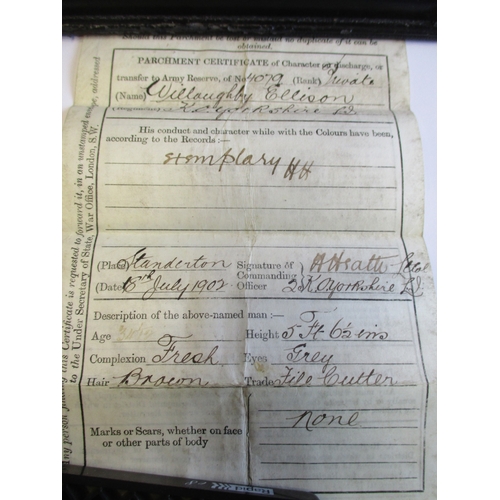 obtained.
PARCHMENT CERTIFICATE of Character on discharge, or
transfer to Army Reserve, of No 4079 (Rank) Private
(Name) Willoughby Ellison
His conduct and character while with the Colours have been,
according to the Records:—
Exemplary HH
(Place) Standerton Signature of
Commanding
(Date) July 1902 Officer 2 K.O. Yorkshire L.I.
Description of the above-named man:—
Age Height 5 Ft 6½ ins
Complexion Fresh Eyes Grey
Hair Brown Trade File Cutter
Marks or Scars, whether on face
or other parts of body
None
Any person finding this Certificate is requested to forward it, in an unstamped envelope, addressed
to the Under Secretary of State, War Office, London, S.W.